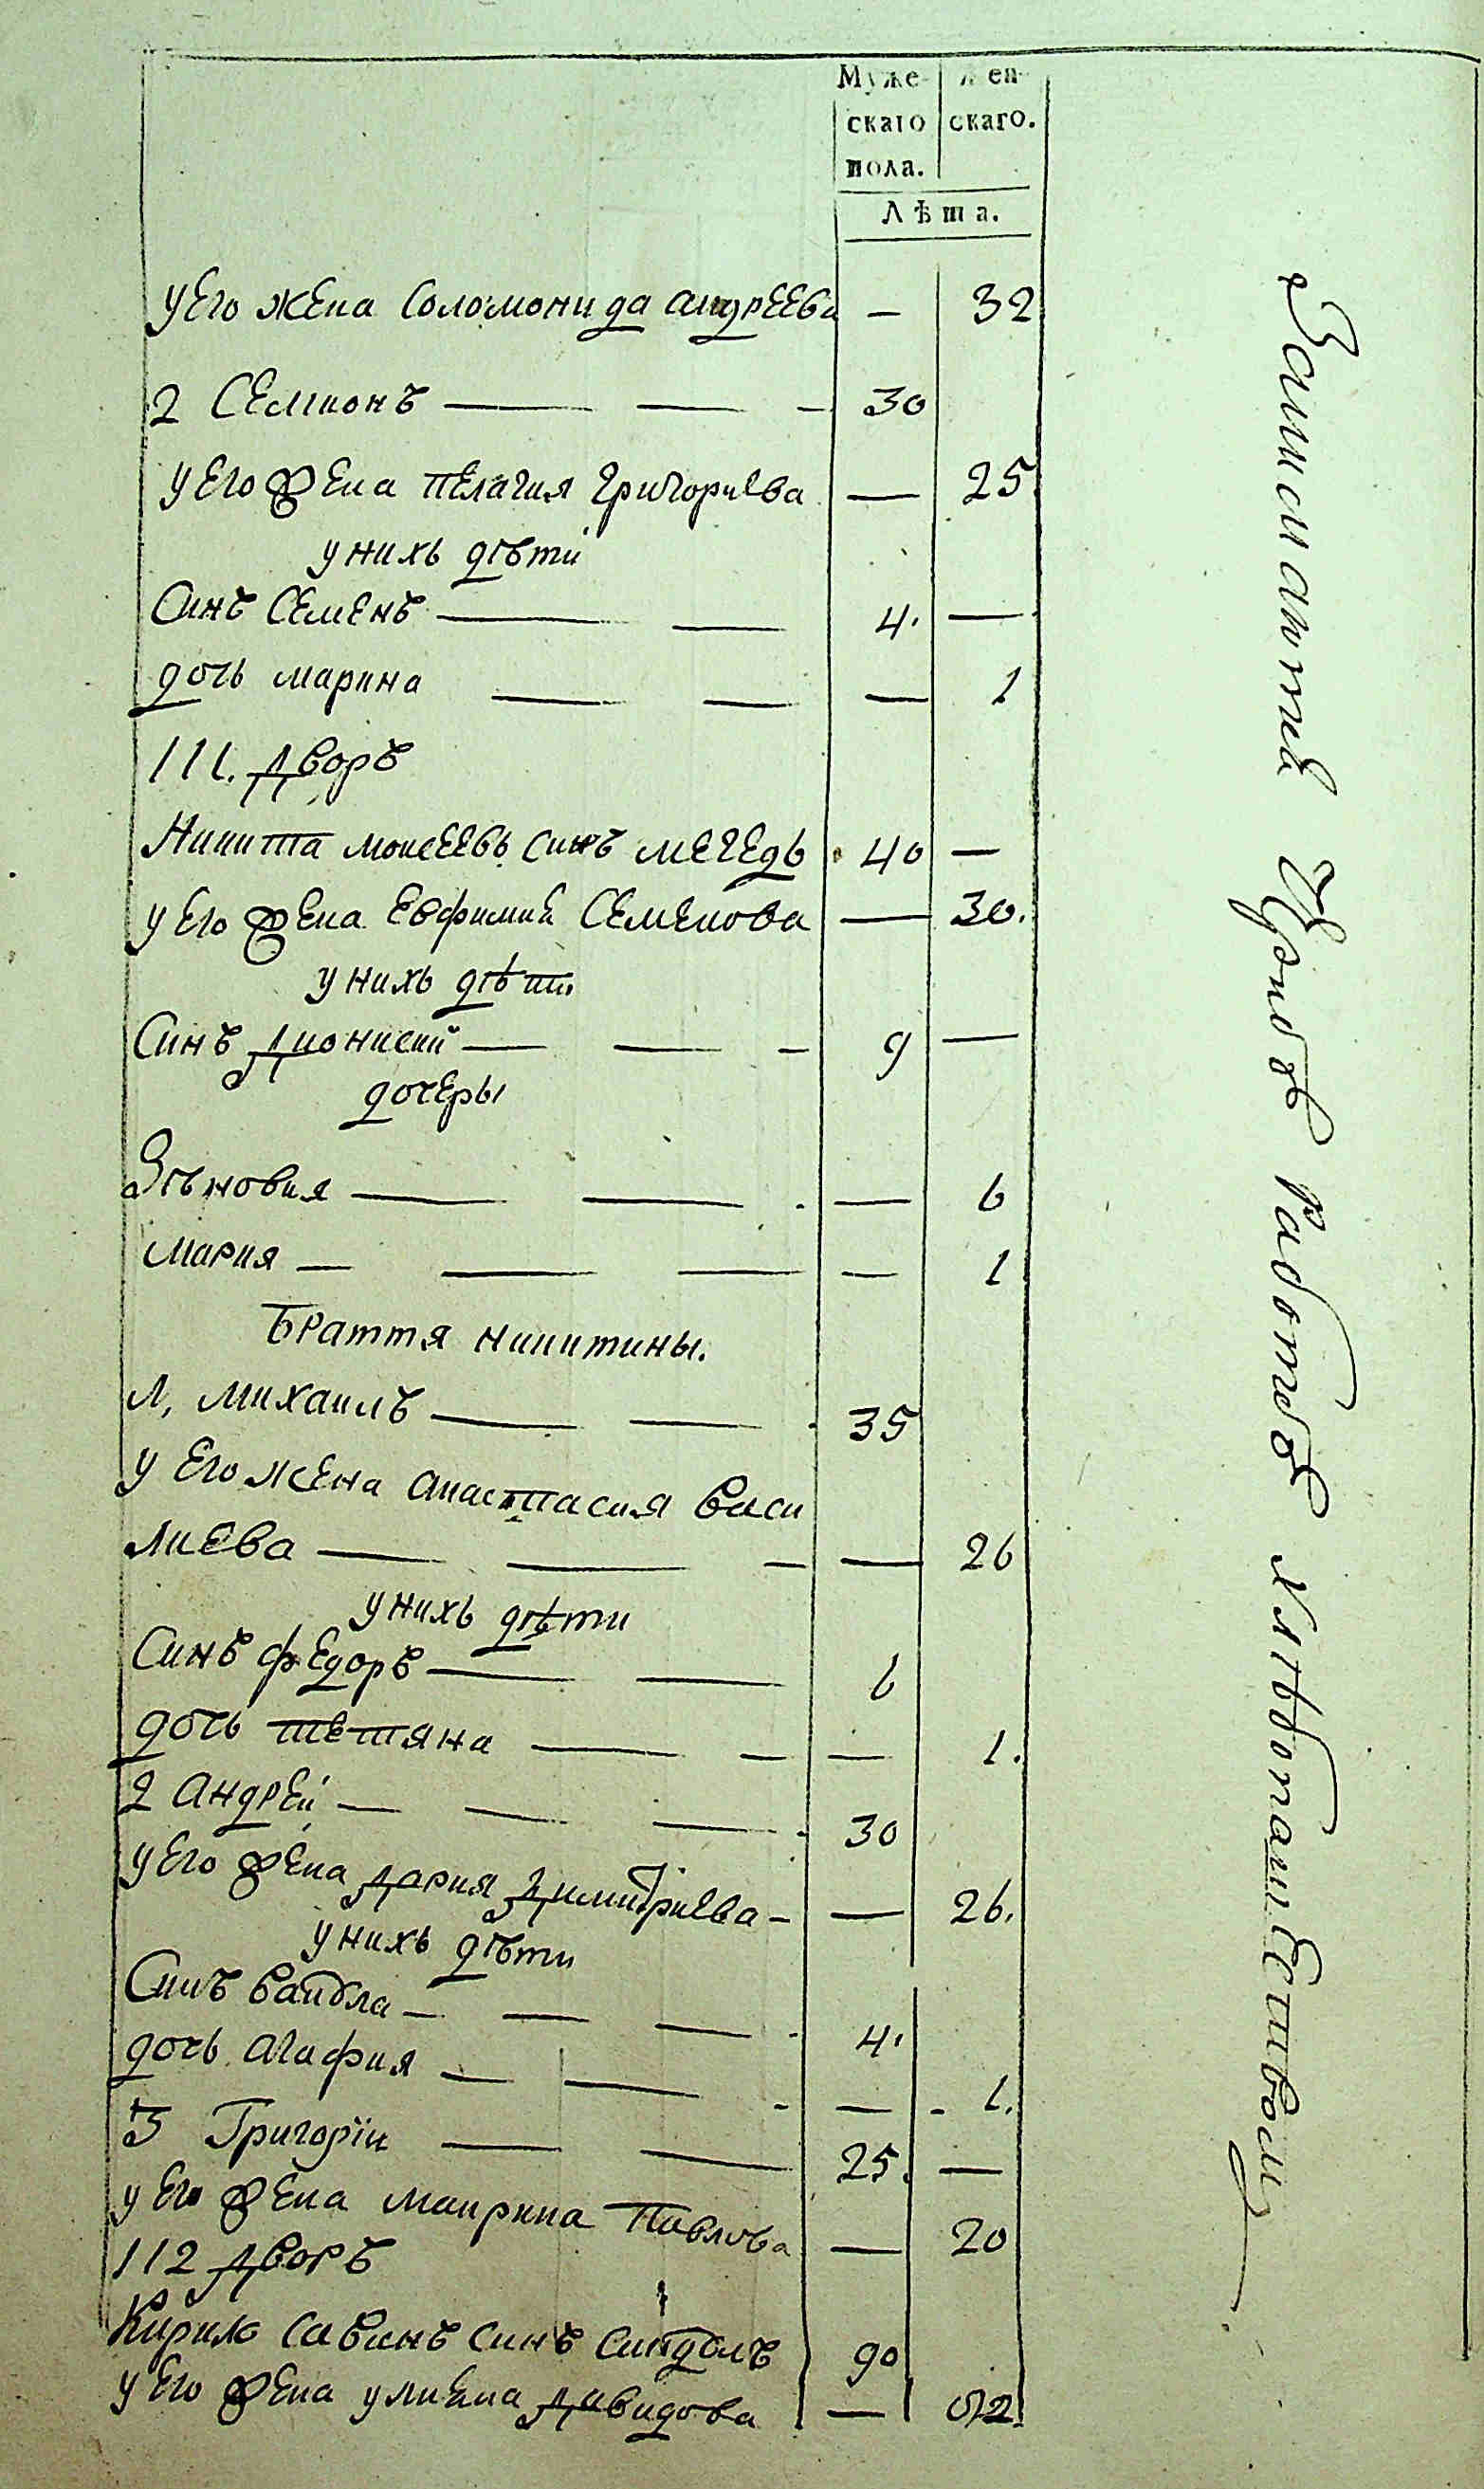 Муже- Жен-
скаго скаго.
пола.
Лѣта.
У Его жена Соломонида андрЕЕва — 32
2 СЕмионъ — 30
У Его жЕна пЕлагия григориева — 25.
у нихъ дѣти
Синъ СЕмЕнъ — 4. —
дочь марина — 1
111. Дворъ
Никита моисЕЕвъ синъ мЕгЕдь 40 —
У Его жЕна Евфимиа СЕмЕнова — 30.
у нихъ дѣти
Синъ Дионисий — 9 —
дочЕры
Зѣновия — 6
мария — 1
Браття никитины.
1, михаилъ — 35
у Его жЕна анастасия васи
лиЕва — 26
у нихъ дѣти
Синъ фЕдоръ — 6
дочь тЕтяна — 1.
2 андрЕй — 30
у Его жЕна Дария Димитриева — 26.
у нихъ дѣти
Синъ — 4.
дочь агафия — 1.
3 Григорїи — 25. —
у Его жЕна маирина Павлова — 20
112 Дворъ
Кирило Савинъ синъ 90
у Его жЕна улиЕна Давидова — 52.